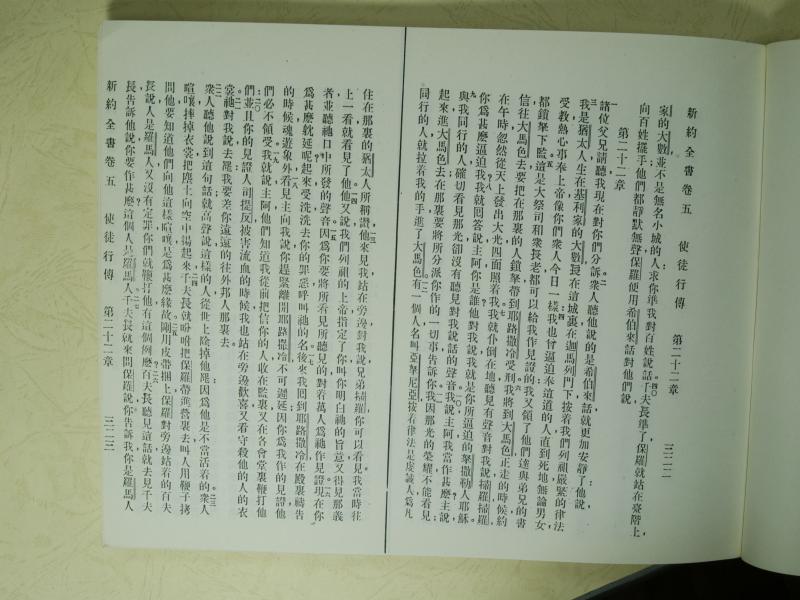 新約全書卷五　使徒行傳　第二十二章　三二二
家的大數並不是無名小城的人求你準我對百姓說話四〇千夫長準了保羅就站在臺階上
向百姓擺手他們都靜默無聲保羅便用希伯來話對他們說
第二十二章
一諸位父兄請聽我現在對你們分訴二衆人聽他說的是希伯來話就更加安靜了他說
三我是猶太人生在基利家的大數長在這城裏在迦馬列門下按着我們列祖嚴緊的律法
受教熱心事奉上帝像你們衆人今日一樣四我也曾逼迫奉這道的人直到死地無論男女
都鎖拏下監五這是大祭司和衆長老都可以給我作見證的我又領了他們達與弟兄的書
信往大馬色去要把在那裏的人鎖拏帶到耶路撒冷受刑六我將到大馬色正走的時候約
在午時忽然從天上發出大光四面照着我七我就仆倒在地聽見有聲音對我說掃羅掃羅
你爲甚麼逼迫我八我就回答說主阿你是誰他對我說我就是你所逼迫的拏撒勒人耶穌
九與我同行的人確切看見那光卻沒有聽見對我說話的聲音一〇我說主阿我當作甚麼主說
起來進大馬色去在那裏要將所分派你作的一切事告訴你一一我因那光的榮耀不能看見
同行的人就拉着我的手進了大馬色一二有一個人名叫亞拏尼亞按着律法是虔誠人爲凡
住在那裏的猶太人所稱讚一三他來見我站在旁邊對我說兄弟掃羅你可以看見我當時往
上一看就看見了他一四他又說我們列祖的上帝指定了你叫你明白祂的旨意又得見那義
者並聽祂口中所發的聲音一五因爲你要將所看見所聽見的對着萬人爲祂作見證一六現在你
爲甚麼躭延呢起來受洗洗去你的罪惡呼叫祂的名一七後來我囘到耶路撒冷在殿裏禱告
的時候魂遊象外一八看見主向我說你趕緊離開耶路撒冷不可遲延因你爲我作的見證他
們必不領受一九我就說主阿他們知道我從前把信你的人收在監裏又在各會堂裏鞭打他
們二〇並且你的見證人司提反被害流血的時候我也站在旁邊歡喜又看守殺他的人的衣
裳二一祂對我說去罷我要差你遠遠的往外邦人那裏去
二二衆人聽他說到這句話就高聲說這樣的人從世上除掉他罷因爲他是不當活着的二三衆人
喧嚷摔掉衣裳把塵土向空中揚起來二四千夫長就吩咐把保羅帶進營裏去叫人用鞭子拷
問他要知道他們向他這樣喧嘩是爲甚麼緣故二五剛用皮帶捆上保羅對旁邊站着的百夫
長說人是羅馬人又沒有定罪你們就鞭打他有這個例麼二六百夫長聽見這話就去見千夫
長告訴他說你要作甚麼這個人是羅馬人二七千夫長就來問保羅說你告訴我你是羅馬人
新約全書卷五　使徒行傳　第二十二章　三二三